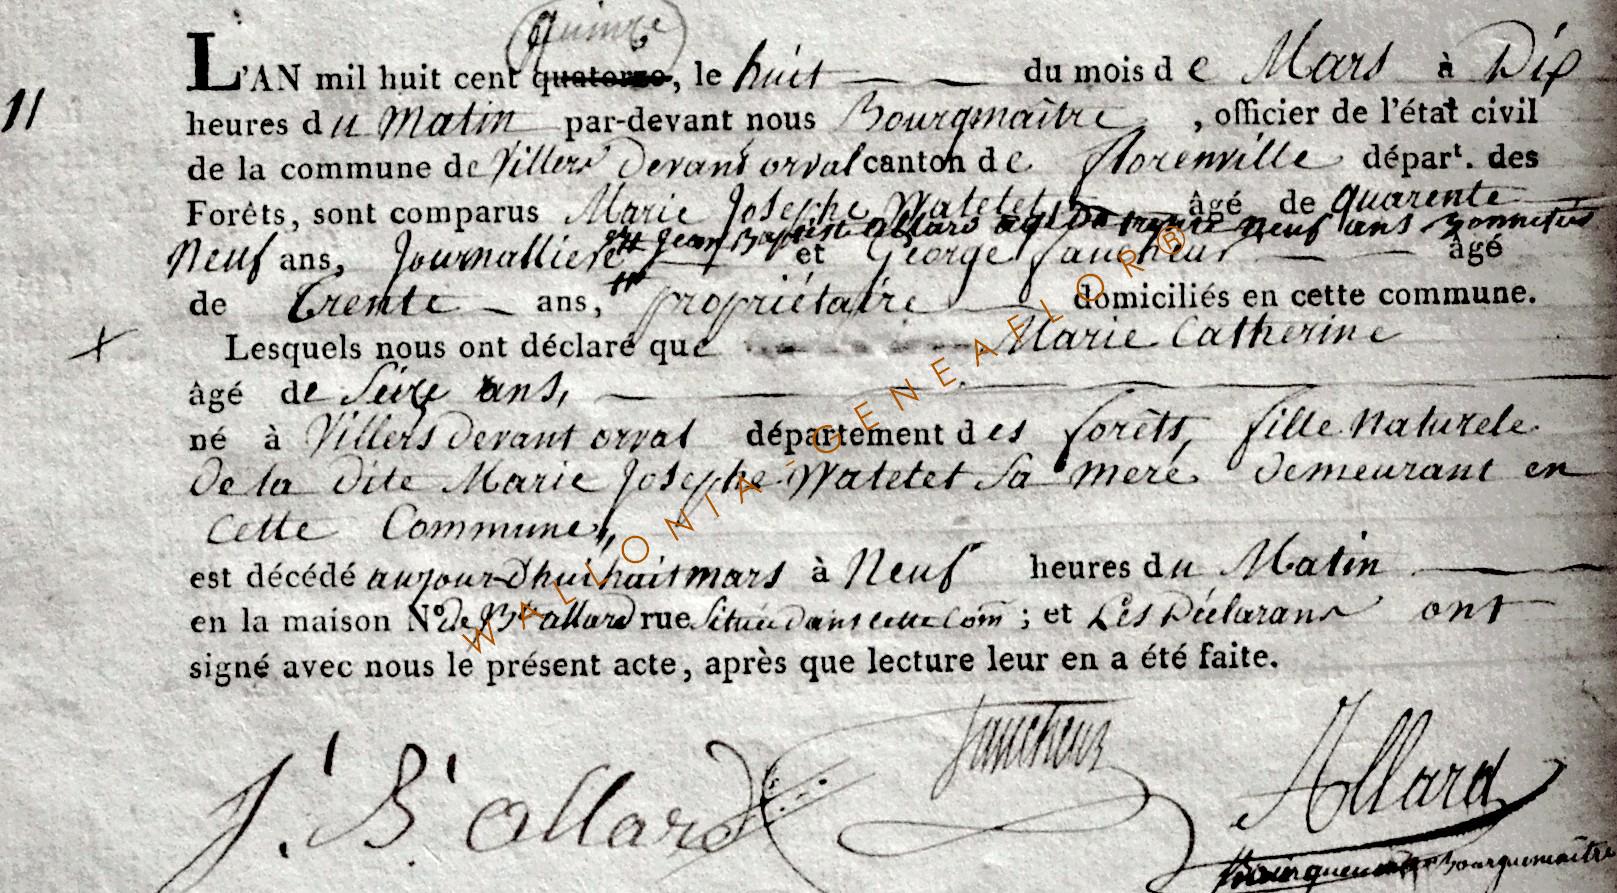 quinze
L'AN mil huit cent quatorze, le huit du mois de Mars à Dix
11
heures du Matin par-devant nous Bourgmaître, officier de l'état civil
de la commune de Villers devant orval canton de florenville départ. des
Forêts, sont comparus Marie Josephe Watelet âgé de quarente
Jean Baptist allard agé De trente neuf ans
Neuf ans, Journalliere et George faucheur âgé
de Trente ans, propriétaire domiciliés en cette commune.
Lesquels nous ont déclaré que Marie Catherine
âgé de Seize ans,
né à Villers devant orval département des forêts, fille Naturele
de la dite Marie Josephe Watelet sa mere, demeurant en
cette Commune,
est décédé aujourd'hui huit mars à Neuf heures du Matin
en la maison N° de Bte allard rue Située dans cette Com ; et Les Déclarans ont
signé avec nous le présent acte, après que lecture leur en a été faite.
J. B. allard
faucheur
Allard
Bourguemaitre
WALLONIA-GENEAFLOR®